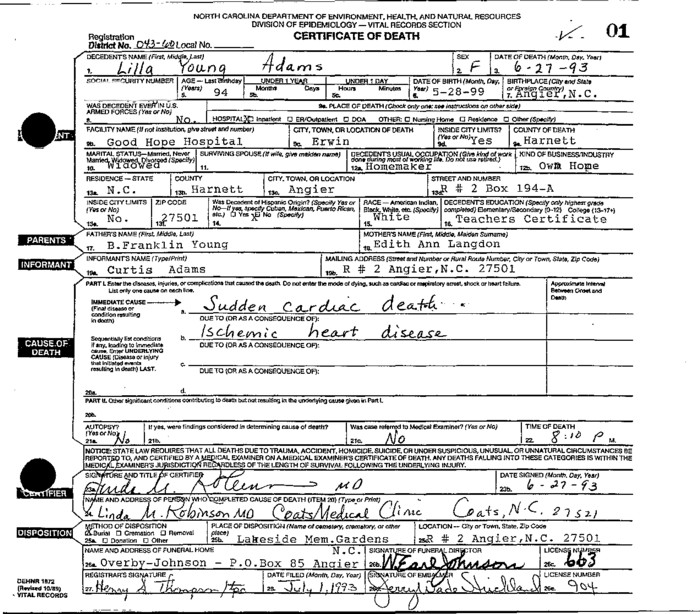 NORTH CAROLINA DEPARTMENT OF ENVIRONMENT, HEALTH, AND NATURAL RESOURCES
DIVISION OF EPIDEMIOLOGY — VITAL RECORDS SECTION
CERTIFICATE OF DEATH
01
Registration District No. 043-60 Local No.
DECEDENT'S NAME (First, Middle, Last) SEX DATE OF DEATH (Month, Day, Year)
1. Lilla Young Adams 2. F 3. 6-27-93
SOCIAL SECURITY NUMBER AGE — Last Birthday (Years) UNDER 1 YEAR UNDER 1 DAY DATE OF BIRTH (Month, Day, Year) BIRTHPLACE (City and State or Foreign Country)
5. 94 5b. Months Days 5c. Hours Minutes 6. 5-28-99 7. Angier, N.C.
WAS DECEDENT EVER IN U.S. ARMED FORCES (Yes or No) 9a. PLACE OF DEATH (Check only one: see instructions on other side)
8. No. HOSPITAL: X Inpatient ☐ ER/Outpatient ☐ DOA OTHER: ☐ Nursing Home ☐ Residence ☐ Other (Specify)
FACILITY NAME (If not institution, give street and number) CITY, TOWN, OR LOCATION OF DEATH INSIDE CITY LIMITS? (Yes or No) COUNTY OF DEATH
9b. Good Hope Hospital 9c. Erwin 9d. Yes 9e. Harnett
MARITAL STATUS—Married, Never Married, Widowed, Divorced (Specify) SURVIVING SPOUSE (If wife, give maiden name) DECEDENT'S USUAL OCCUPATION (Give kind of work done during most of working life. Do not use retired.) KIND OF BUSINESS/INDUSTRY
10. Widowed 11. 12a. Homemaker 12b. Own Home
RESIDENCE — STATE COUNTY CITY, TOWN, OR LOCATION STREET AND NUMBER
13a. N.C. 13b. Harnett 13c. Angier 13d. R # 2 Box 194-A
INSIDE CITY LIMITS (Yes or No) ZIP CODE Was Decedent of Hispanic Origin? (Specify Yes or No—If yes, specify Cuban, Mexican, Puerto Rican, etc.) ☐ Yes X No (Specify) RACE — American Indian, Black, White, etc. (Specify) DECEDENT'S EDUCATION (Specify only highest grade completed) Elementary/Secondary (0-12) College (13-17+)
13e. No. 13f. 27501 14. 15. White 16. Teachers Certificate
PARENTS
FATHER'S NAME (First, Middle, Last) MOTHER'S NAME (First, Middle, Maiden Surname)
17. B.Franklin Young 18. Edith Ann Langdon
INFORMANT
INFORMANT'S NAME (Type/Print) MAILING ADDRESS (Street and Number or Rural Route Number, City or Town, State, Zip Code)
19a. Curtis Adams 19b. R # 2 Angier,N.C. 27501
PART I. Enter the diseases, injuries, or complications that caused the death. Do not enter the mode of dying, such as cardiac or respiratory arrest, shock or heart failure. List only one cause on each line. Approximate Interval Between Onset and Death
IMMEDIATE CAUSE (Final disease or condition resulting in death) a. Sudden cardiac death
DUE TO (OR AS A CONSEQUENCE OF):
CAUSE OF DEATH
Sequentially list conditions if any, leading to immediate cause. Enter UNDERLYING CAUSE (Disease or injury that initiated events resulting in death) LAST. b. Ischemic heart disease
DUE TO (OR AS A CONSEQUENCE OF):
c.
DUE TO (OR AS A CONSEQUENCE OF):
20a. d.
PART II. Other significant conditions contributing to death but not resulting in the underlying cause given in Part I.
20b.
AUTOPSY? (Yes or No) If yes, were findings considered in determining cause of death? Was case referred to Medical Examiner? (Yes or No) TIME OF DEATH
21a. No 21b. 21c. No 22. 8:10 P M.
NOTICE: STATE LAW REQUIRES THAT ALL DEATHS DUE TO TRAUMA, ACCIDENT, HOMICIDE, SUICIDE, OR UNDER SUSPICIOUS, UNUSUAL, OR UNNATURAL CIRCUMSTANCES BE
REPORTED TO, AND CERTIFIED BY A MEDICAL EXAMINER ON A MEDICAL EXAMINER'S CERTIFICATE OF DEATH. ANY DEATHS FALLING INTO THESE CATEGORIES IS WITHIN THE
MEDICAL EXAMINER'S JURISDICTION REGARDLESS OF THE LENGTH OF SURVIVAL FOLLOWING THE UNDERLYING INJURY.
SIGNATURE AND TITLE OF CERTIFIER DATE SIGNED (Month, Day, Year)
Linda M. MD 23b. 6-27-93
CERTIFIER
NAME AND ADDRESS OF PERSON WHO COMPLETED CAUSE OF DEATH (ITEM 20) (Type or Print)
24. Linda M. Robinson MD Coats Medical Clinic Coats, N.C. 27521
DISPOSITION
METHOD OF DISPOSITION PLACE OF DISPOSITION (Name of cemetery, crematory, or other place) LOCATION — City or Town, State, Zip Code
Burial ☐ Cremation ☐ Removal
25a. ☐ Donation ☐ Other 25b. Lakeside Mem.Gardens 25c. R # 2 Angier, N.C. 27501
NAME AND ADDRESS OF FUNERAL HOME N.C. SIGNATURE OF FUNERAL DIRECTOR LICENSE NUMBER
26a. Overby-Johnson - P.O.Box 85 Angier 26b. W. Earl Johnson 26c. 663
REGISTRAR'S SIGNATURE DATE FILED (Month, Day, Year) SIGNATURE OF EMBALMER LICENSE NUMBER
27. Henry S Thompson 28. July 1, 1993 26d. Jerry Wade Strickland 26e. 904
DEHNR 1872
(Revised 10/89)
VITAL RECORDS